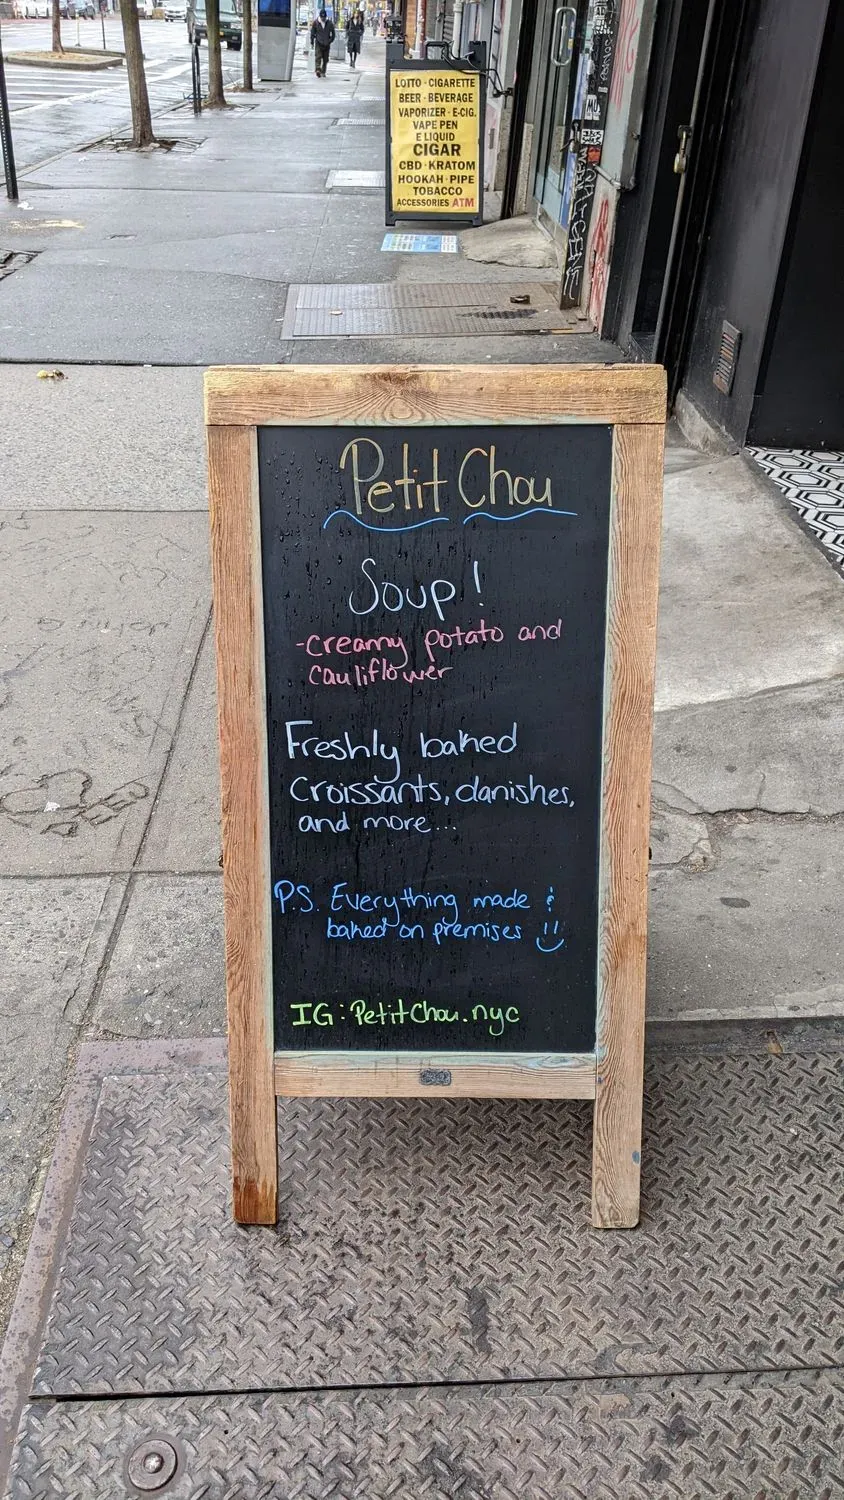 LOTTO · CIGARETTE
BEER · BEVERAGE
VAPORIZER · E-CIG.
VAPE PEN
E LIQUID
CIGAR
CBD · KRATOM
HOOKAH · PIPE
TOBACCO
ACCESSORIES ATM
Petit Chou
Soup!
-creamy potato and
cauliflower
Freshly baked
croissants, danishes,
and more...
P.S. Everything made &
baked on premises
IG: PetitChou.nyc